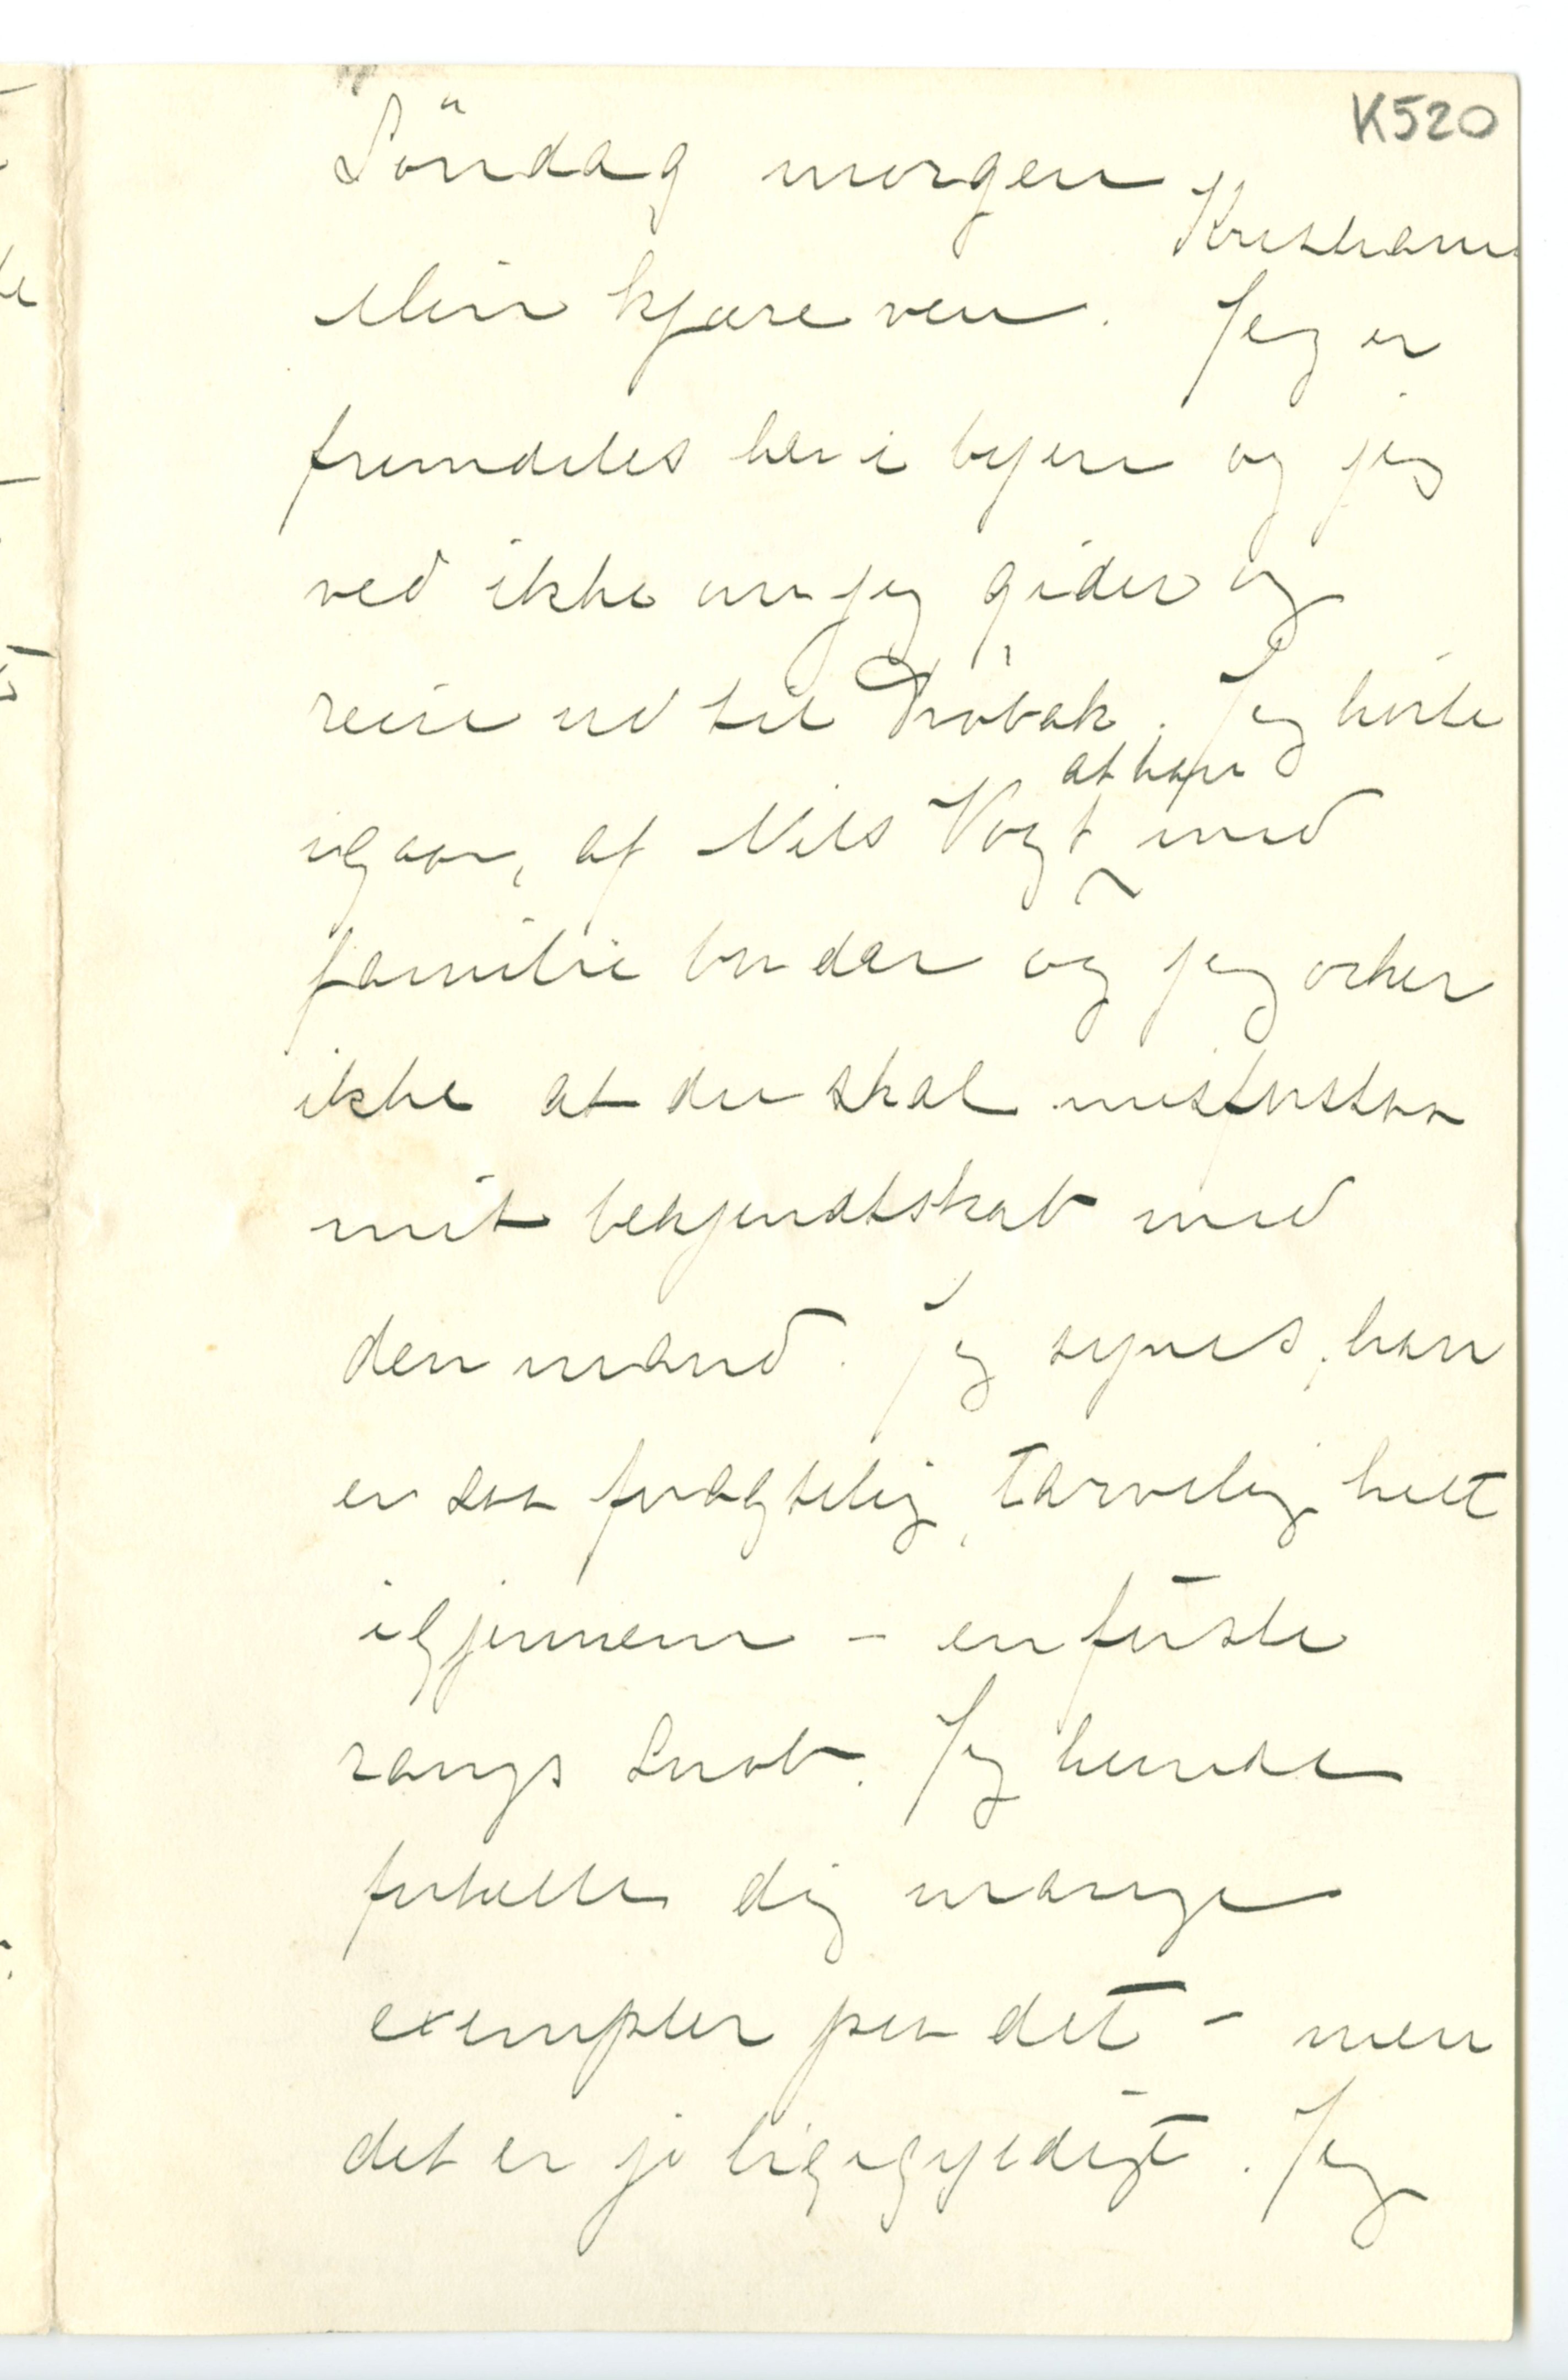 K520
Söndag morgen
Kristiania
Min kjære ven. Jeg er
fremdeles her i byen og jeg
ved ikke om jeg gider og
reise ud til Drøbak. Jeg hørte
at han
igaar, af Nils Vogt med
familie bor der og jeg orker
ikke at du skal misforstaa
mit bekjendtskab med
den mand. Jeg synes, han
er saa frygtelig, tarvelig helt
igjennem – en første
rangs Snob. Jeg kunde
fortelle dig mange
exempler paa det – men
det er jo ligegyldigt. Jeg